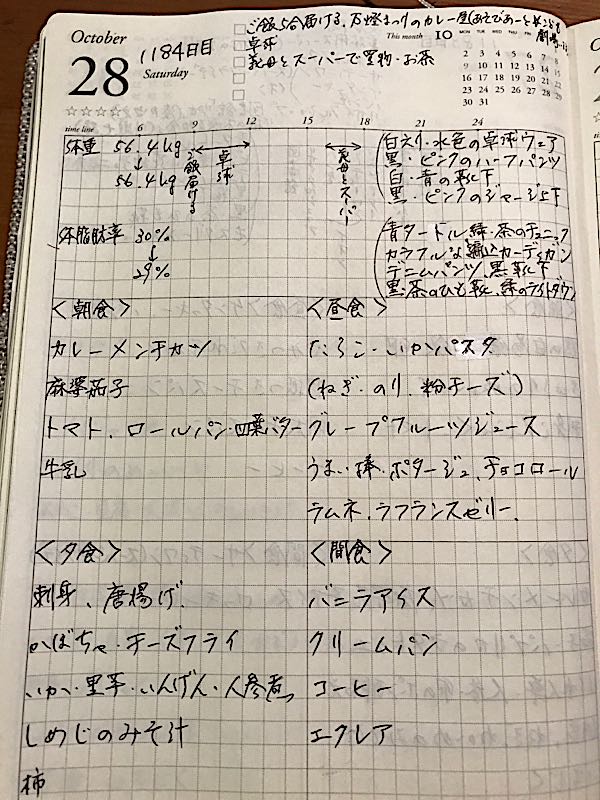 October
28
Saturday
1184日目
☆☆☆☆☆
ご飯5合届ける、万燈まつりのカレー屋(あそびあーと
卓球
義母とスーパーで買物・お茶
This month 10
MON TUE WED THU FRI SAT SUN
1
2 3 4 5 6 7 8
9 10 11 12 13 14 15
16 17 18 19 20 21 22
23 24 25 26 27 28 29
30 31
time line 6 9 12 15 18 21 24
体重 56.4kg
↓
56.4kg
ご飯届ける
卓球
義母とスーパー
白・水色の卓球ウェア
黒・ピンクのハーフパンツ
白・青の靴下
黒・ピンクのジャージ上下
体脂肪率 30%
↓
29%
青タートル 緑・茶のチュニック
カラフルな編込カーディガン
デニムパンツ、黒靴下
黒・茶のひも靴、緑のライトダウン
<朝食>
カレーメンチカツ
麻婆茄子
トマト、ロールパン・四葉バター
牛乳
<昼食>
たらこ・いかパスタ
(ねぎ・のり、粉チーズ)
グレープフルーツジュース
うまい棒・ポタージュ、チョコロール
ラムネ、ラフランスゼリー、
<夕食>
刺身、唐揚げ、
かぼちゃ・チーズフライ
いか・里芋・いんげん・人参煮、
しめじのみそ汁
柿
<間食>
バニラアイス
クリームパン
コーヒー
エクレア